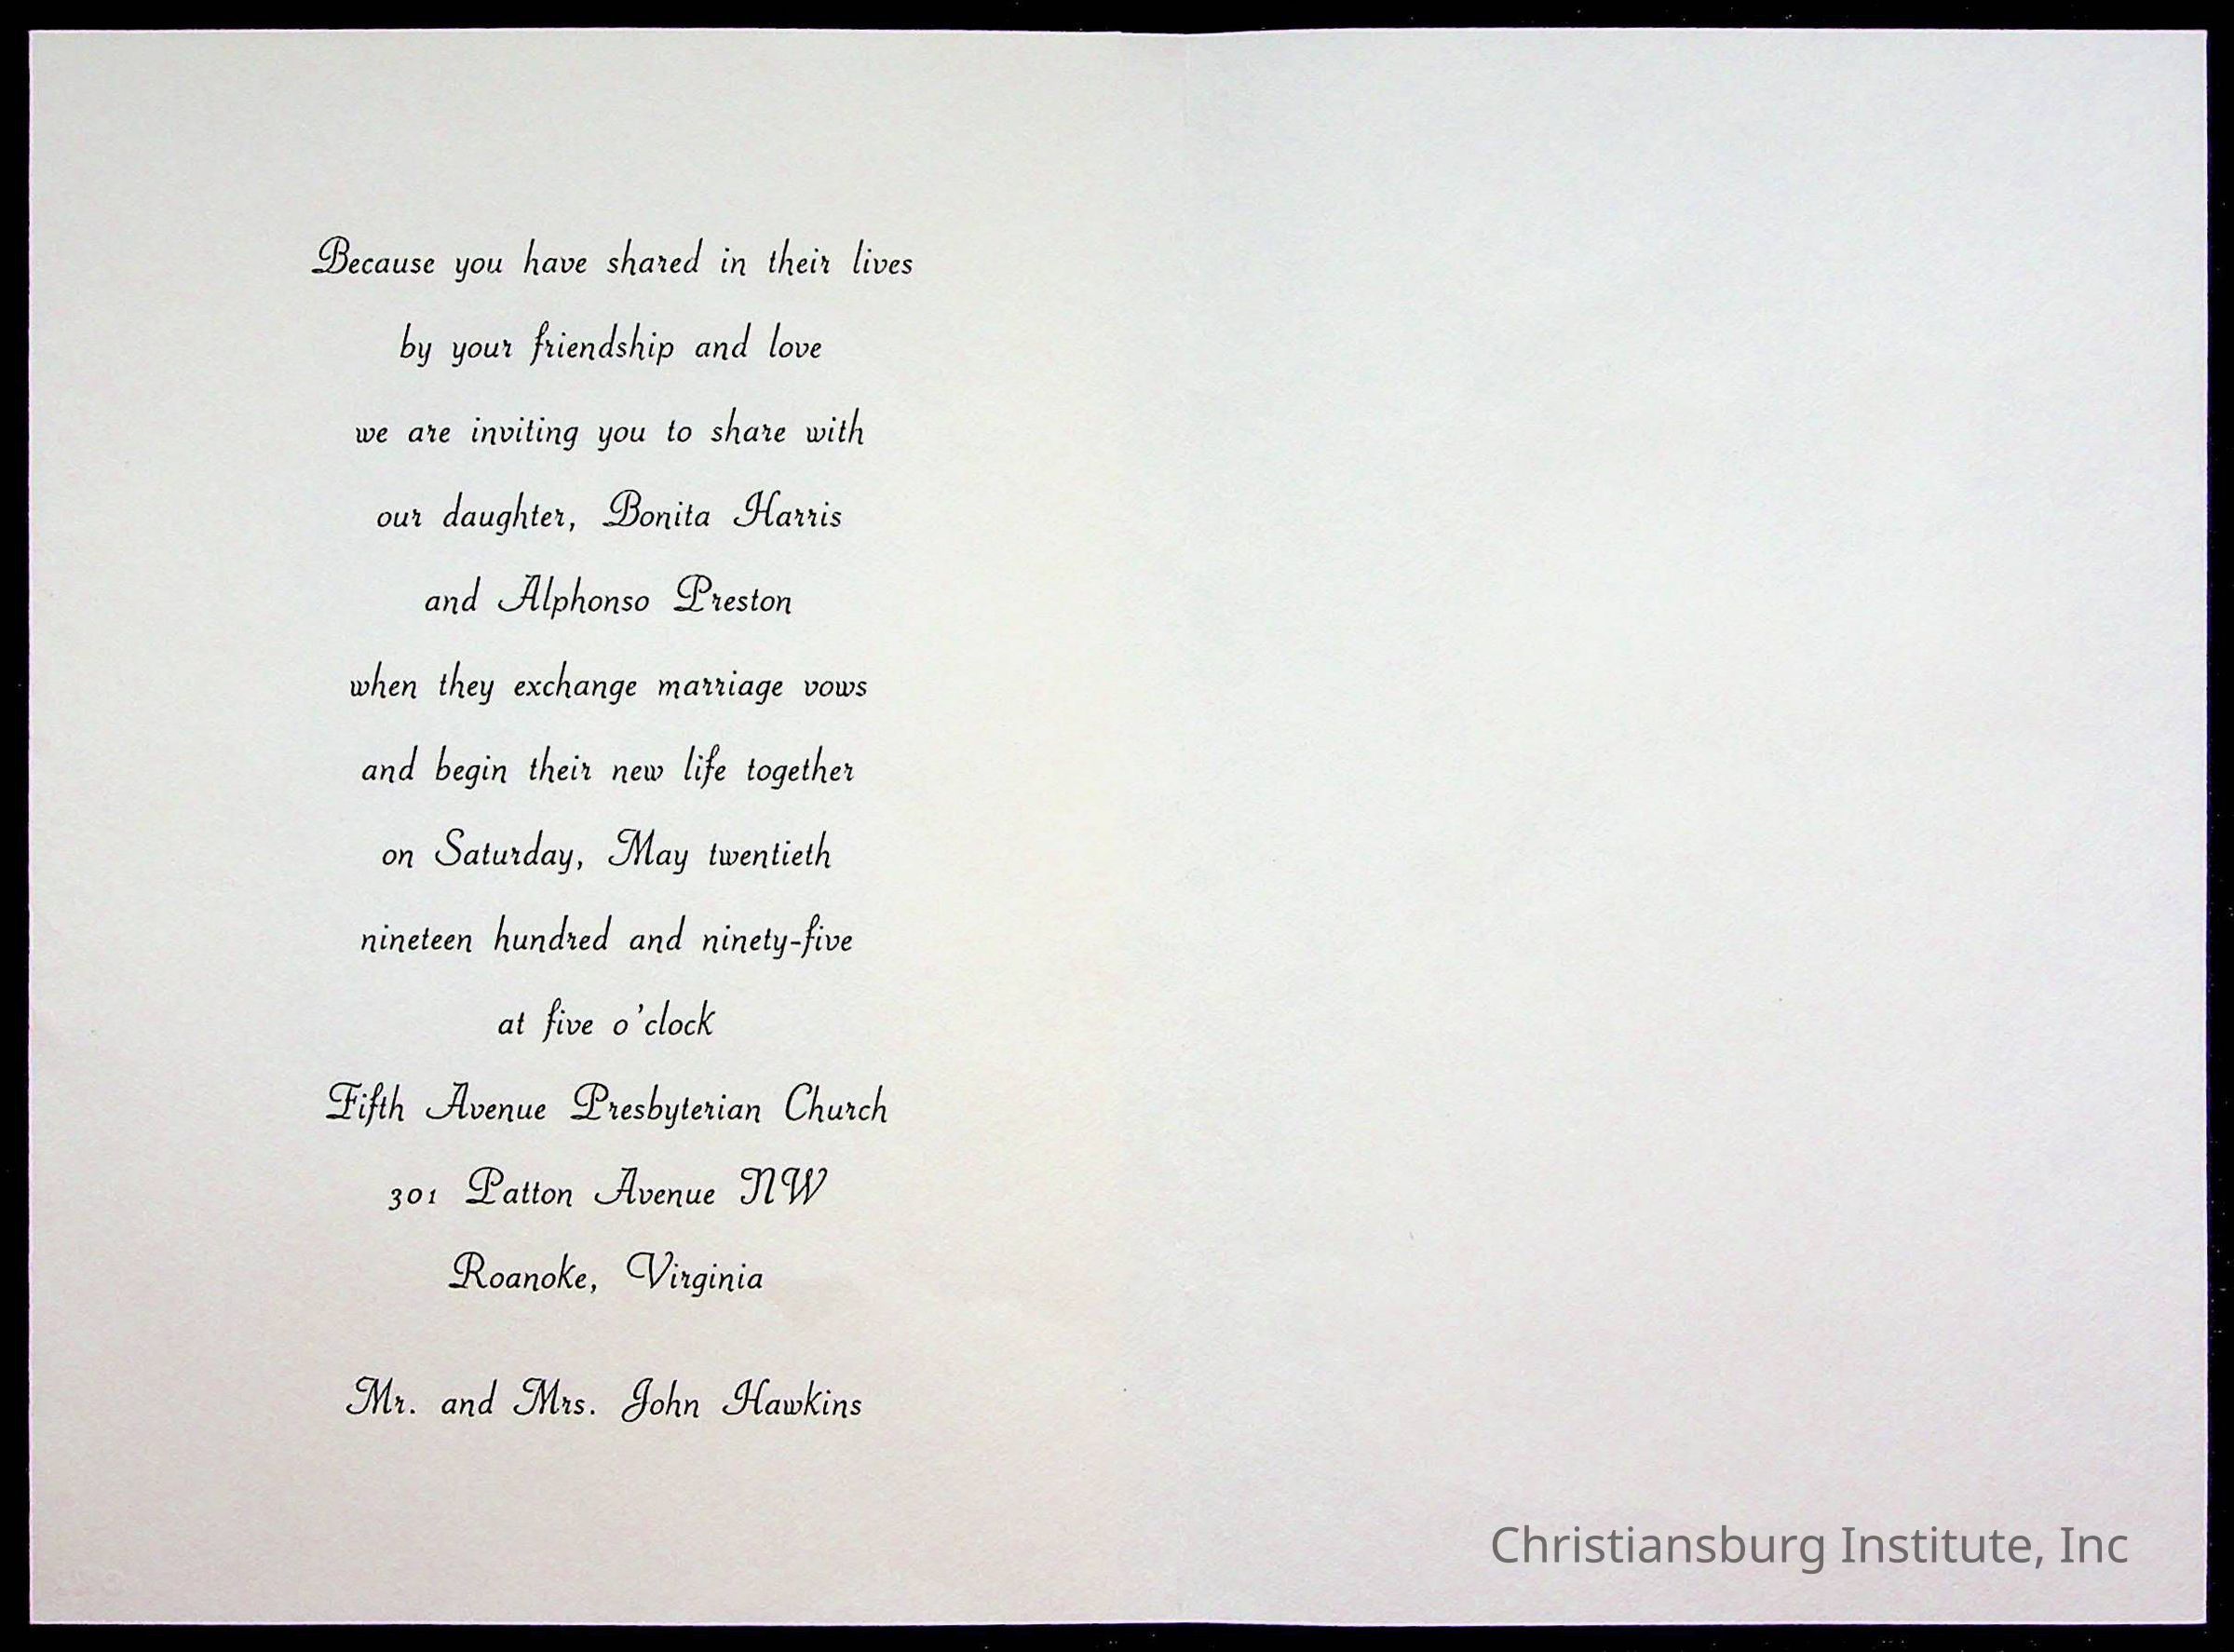 Because you have shared in their lives
by your friendship and love
we are inviting you to share with
our daughter, Bonita Harris
and Alphonso Preston
when they exchange marriage vows
and begin their new life together
on Saturday, May twentieth
nineteen hundred and ninety-five
at five o'clock
Fifth Avenue Presbyterian Church
301 Patton Avenue NW
Roanoke, Virginia
Mr. and Mrs. John Hawkins
Christiansburg Institute, Inc